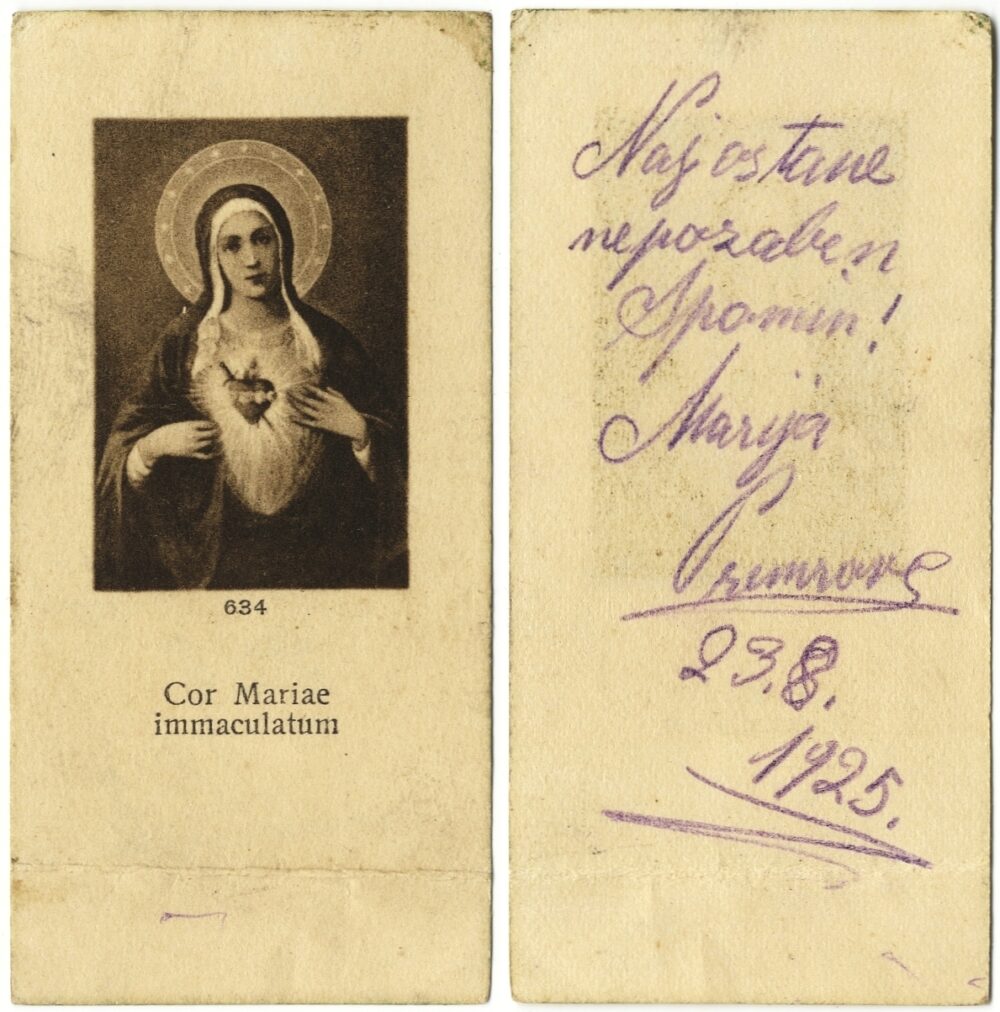 634
Cor Mariae
immaculatum
Naj ostane
nepozaben
Spomin!
Marija
Premrove
23.8.
1925.